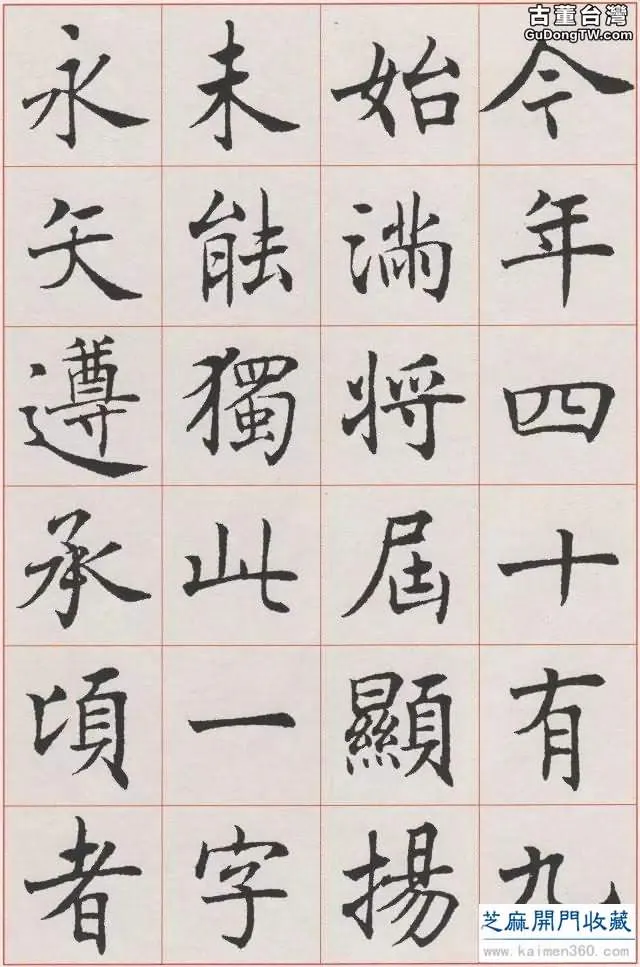 古董台灣
GuDongTW.com
今年四十有九
始滿将屆顯揚
未能獨此一字
永矢遵承頃者
芝麻開門收藏
www.kaimen360.com